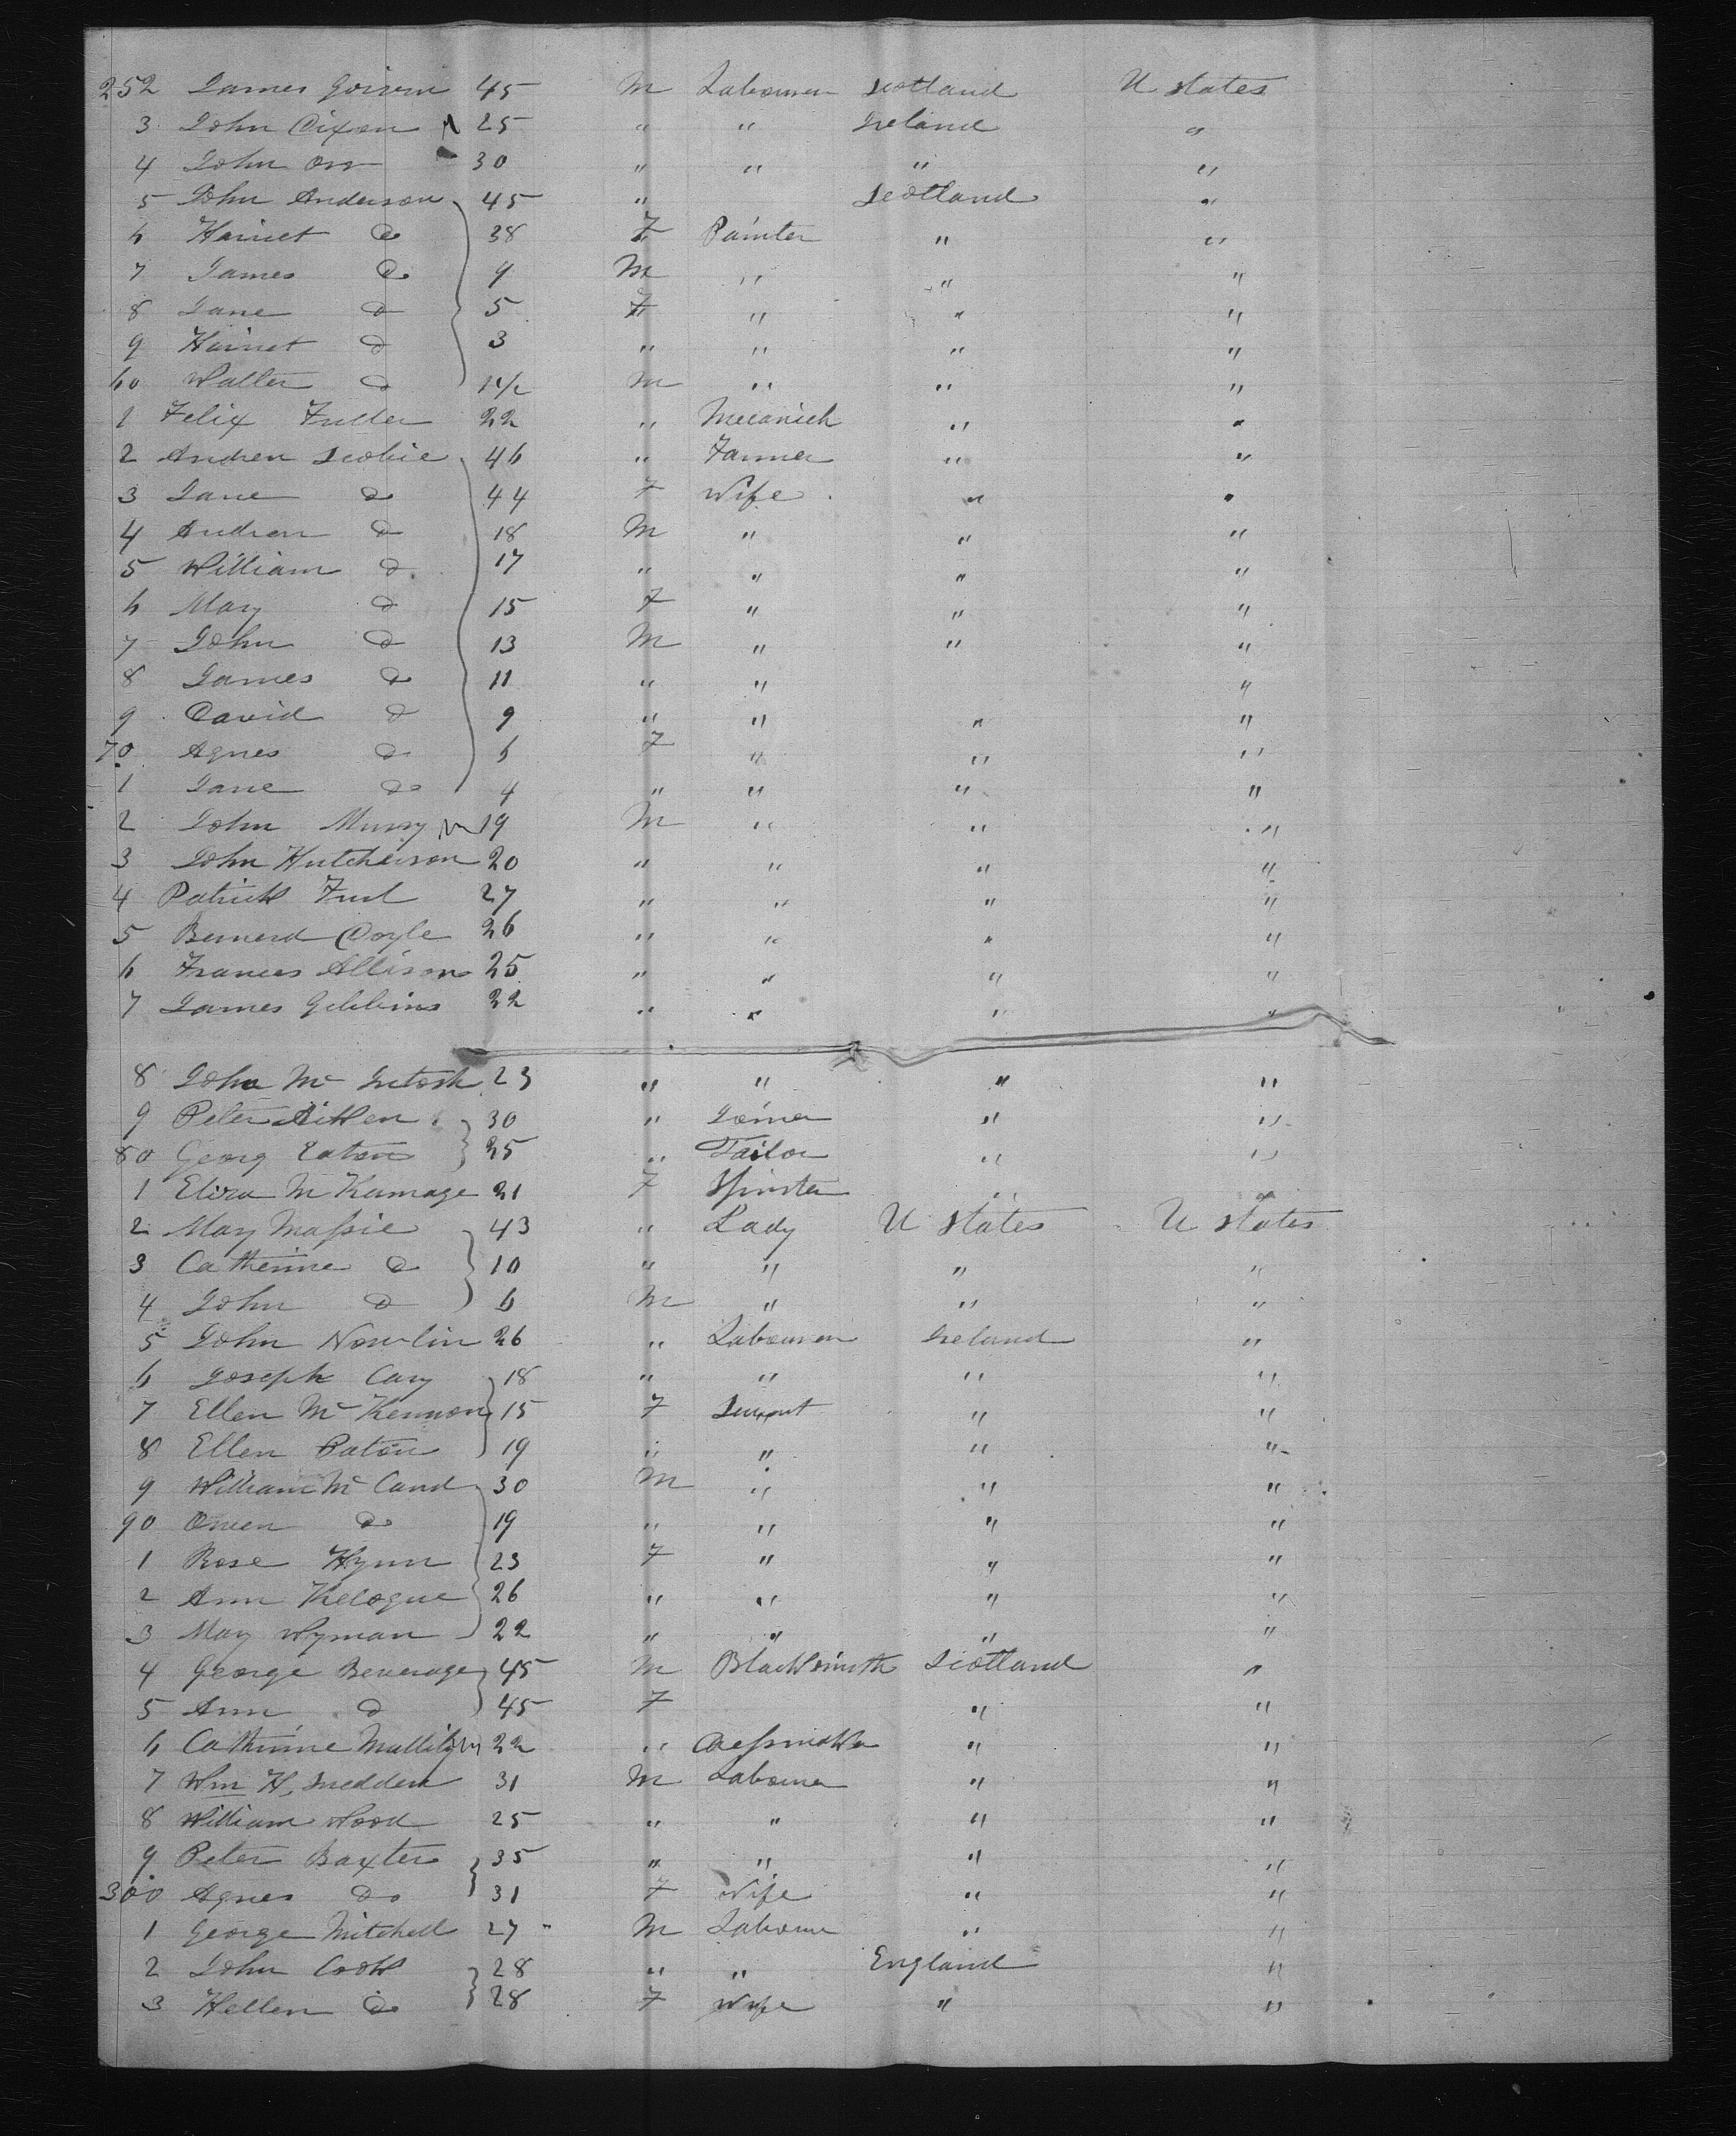 252 James 45 M Labourer Scotland U States
3 John Dixon 25 " " Ireland "
4 John Orr 30 " " " "
5 John Anderson 45 " Scotland "
6 Harriet Do 38 F Painter " "
7 James Do 9 M " " "
8 Jane Do 5 F " " "
9 Harriet Do 3 " " " "
60 Walter Do 1 1/2 M " " "
1 Felix Fuller 22 " Mecanich " "
2 Andrew Scobie 46 " Farmer " "
3 Jane Do 44 F Wife " "
4 Andrew Do 18 M " " "
5 William Do 17 " " " "
6 Mary Do 15 F " " "
7 John Do 13 M " " "
8 James Do 11 " " "
9 David Do 9 " " " "
70 Agnes Do 6 F " " "
1 Jane Do 4 " " " "
2 John Murry 19 M " " "
3 John Hutcheison 20 " " " "
4 Patrick 27 " " " "
5 Bernerd Doyle 26 " " " "
6 Frances Allison 25 " " " "
7 James Gibbins 22 " " " "
8 John Mc Intosh 23 " " " "
9 Peter Aitken 30 " Joiner " "
80 Georg Eaton 25 " Tailor " "
1 Eliza M 21 F Spinster " "
2 Mary Massie 43 " Lady U States U States
3 Catherine Do 10 " " " "
4 John Do 6 M " " "
5 John Nowlin 26 " Labourer Ireland "
6 Joseph Cary 18 " " " "
7 Ellen Mc Kennon 15 F Servant " "
8 Ellen Paton 19 " " " "
9 William Mc Cand 30 M " " "
90 Owen Do 19 " " " "
1 Rose Hynn 23 F " " "
2 Ann Kelogue 26 " " " "
3 Mary Wyman 22 " " " "
4 George Beverage 45 M Blacksmith Scotland "
5 Ann Do 45 F " "
6 Catherine 22 " Dressmaker " "
7 Wm H. Snedden 31 M Labourer " "
8 William Wood 25 " " " "
9 Peter Baxter 35 " " " "
300 Agnes Do 31 F Wife " "
1 George Mitchell 27 " M Labourer " "
2 John Cook 28 " " England "
3 Hellen Do 28 F Wife " "